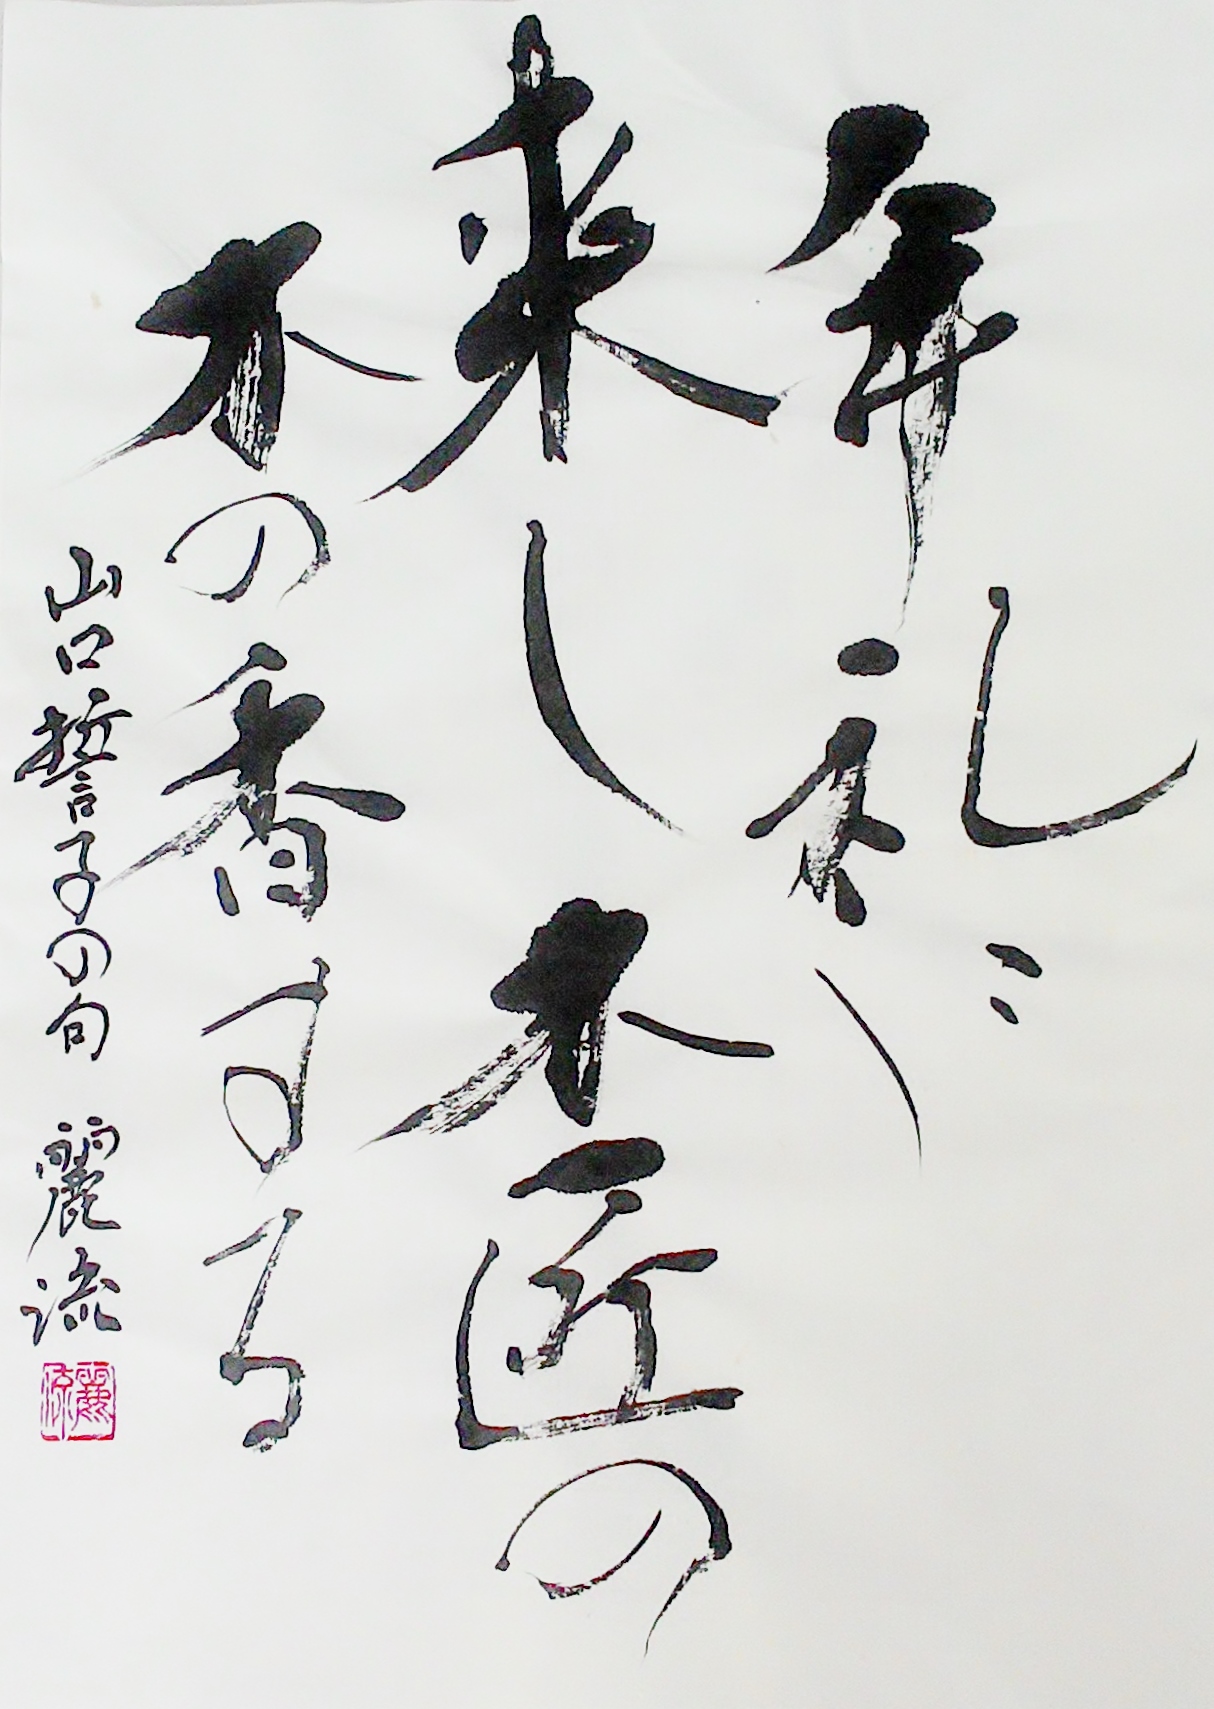 年礼に
来し木匠の
木の香する
山口誓子の句 麗流
麗流